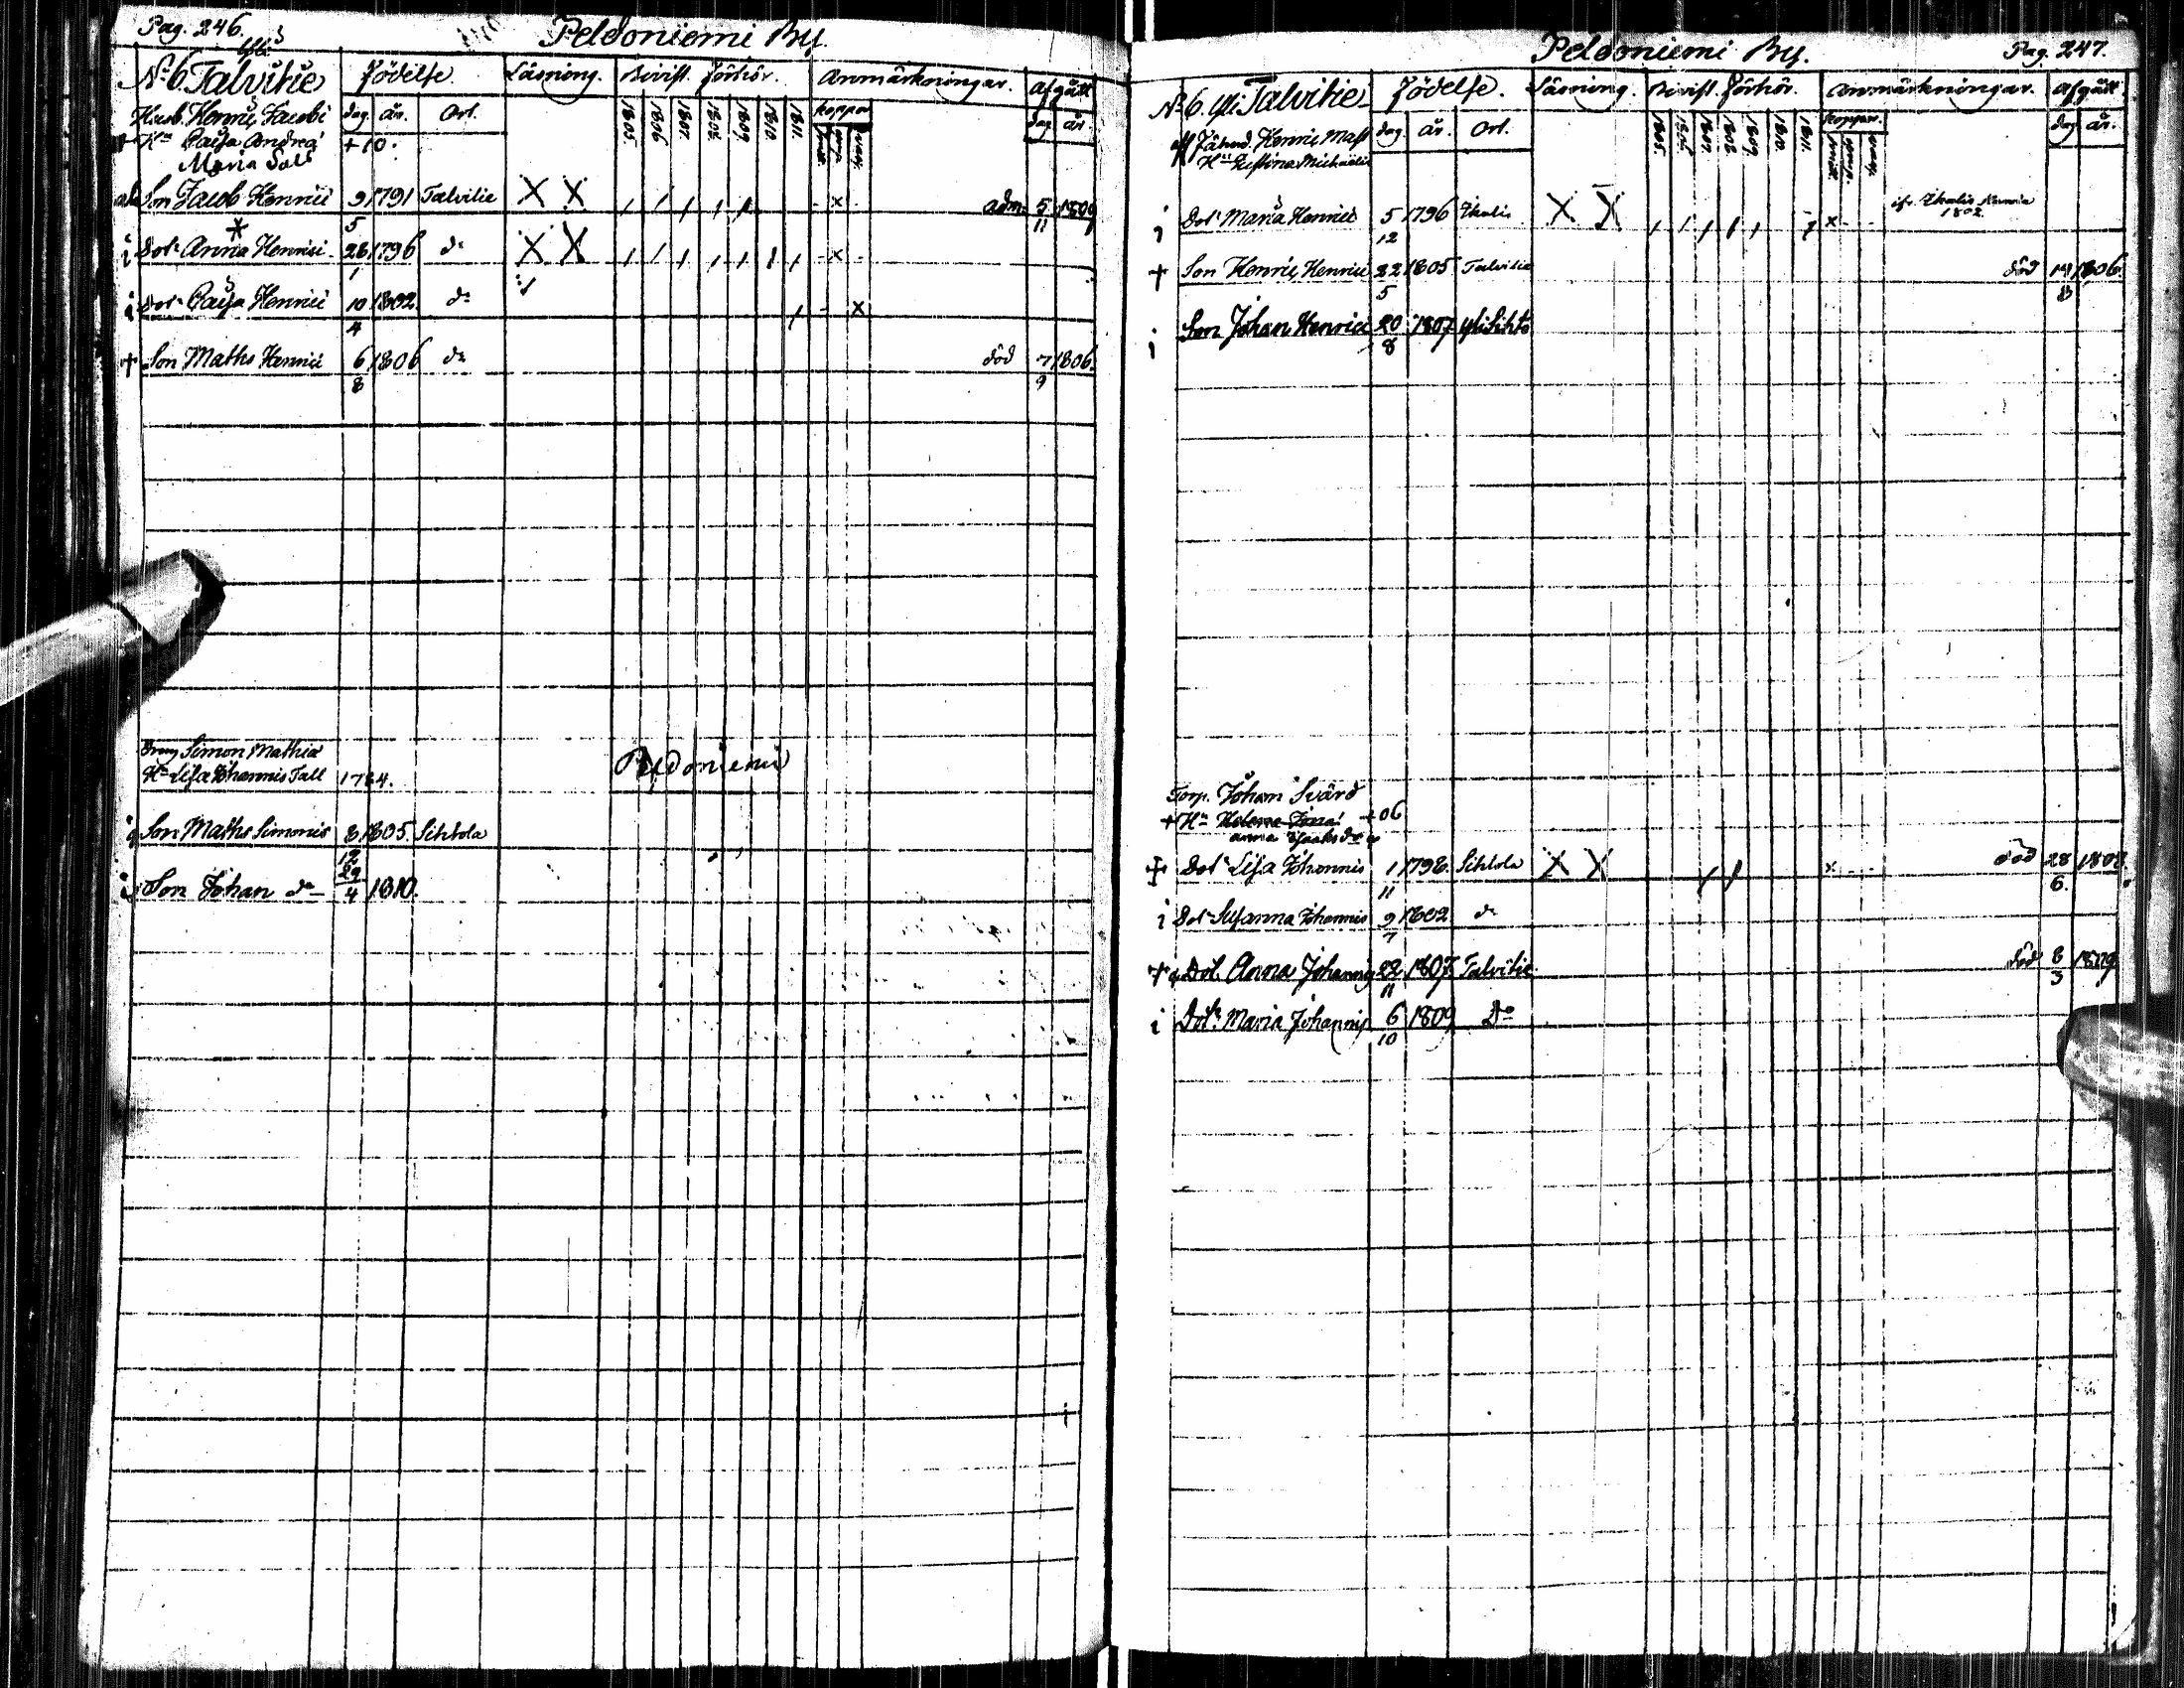 Pag. 246.
Peldoniemi By.
No 6 Talvitie Födelse. Läsning. Bevist. Förhör. Anmärkningar. Afgått
Husb. Henric Jacobi dag. år. Ort. 1805. 1806 1807. 1808. 1809. 1810. 1811. koppor dag år.
+ Hu Caisa Andreæ +10.
Maria Sal
Son Jacob Henrici 9/5 1791 Talvitie X X x adm. 5/11 1809
i Dotr Anna Henrici 26/1 1796 do X X x
i Dotr Caisa Henrici 10/4 1802. do x
+ Son Maths Henrici 6/8 1806 do död 7/9 1806.
Simon Mathiæ Peldoniemi
Hu Lisa Johannis Tall 1784.
Son Maths Simonis 8/12 1805. Sihtola
i Son Johan do 29/4 1810.
Peldoniemi By. Pag. 247.
No 6. Yli Talvitie Födelse. Läsning. Bevist. Förhör. Anmärkningar. Afgått
Henric Matss dag. år. Ort. 1805. 1806. 1807. 1808. 1809. 1810. 1811. koppor. dag år.
Hu Christina Michaelis
i Dotr Maria Henrici 5/12 1796 Ikalis X X x Ikalis
1802.
+ Son Henric Henrici 22/5 1805 Talvitie död 14/8 1806.
i Son Johan Henrici 20/8 1807 YliSihto
Torp. Johan Svärd
+ Hu Helena +06
Anna Isaaksdr
+ Dotr Lisa Johannis 1/11 1798. Sihtola X X x död 28/6. 1808.
i Dotr Susanna Johannis 9/7 1802 do
+ Dotr Anna Johannis 22/11 1807 Talvitie död 8/3 1809
i Dotr Maria Johannis 6/10 1809 Do